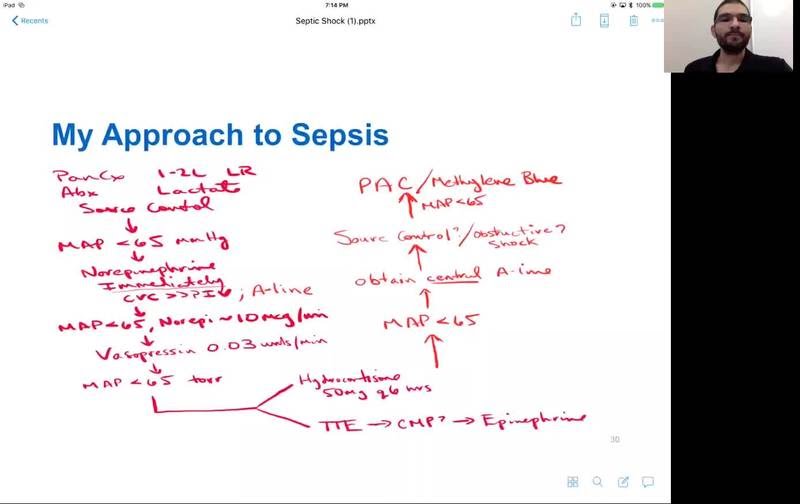 iPad
7:14 PM
100%
Recents
Septic Shock (1).pptx
My Approach to Sepsis
PanCx 1-2L LR
Abx Lactate
Source Control
MAP <65 mmHg
Norepinephrine
Immediately
CVC >>PIV; A-line
MAP<65, Norepi ~10mcg/min
Vasopressin 0.03 units/min
MAP <65 torr
Hydrocortisone
50mg q6 hrs
TTE → CMP? → Epinephrine
MAP <65
obtain central A-line
Source Control?/Obstructive?
Shock
MAP<65
PAC/Methylene Blue
30